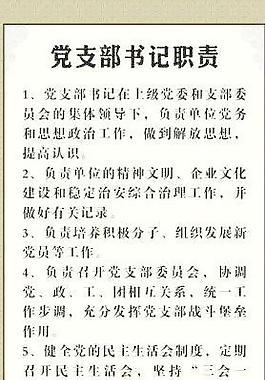 党支部书记职责
1、党支部书记在上级党委和支部委
员会的集体领导下，负责单位党务
和思想政治工作，做到解放思想，
提高认识。
2、负责单位的精神文明、企业文化
建设和稳定治安综合治理工作，并
做好有关记录。
3、负责培养积极分子、组织发展新
党员等工作。
4、负责召开党支部委员会，协调
党、政、工、团相互关系，统一工
作步调，充分发挥党支部战斗堡垒
作用。
5、健全党的民主生活会制度，定期
召开民主生活会，坚持“三会一